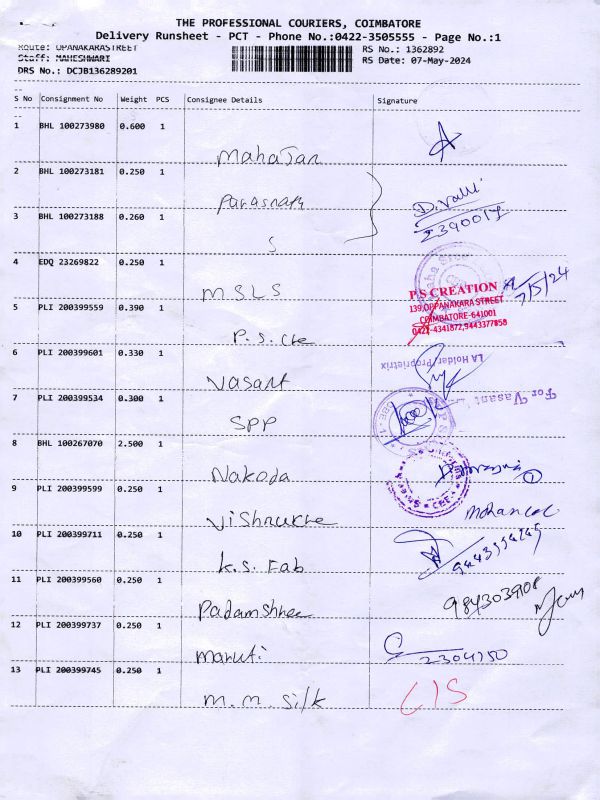 THE PROFESSIONAL COURIERS, COIMBATORE
Delivery Runsheet - PCT - Phone No.:0422-3505555 - Page No.:1
Route: OPANAKARASTREET
RS No.: 1362892
Staff: MAHESHWARI
RS Date: 07-May-2024
DRS No.: DCJB136289201
S No Consignment No Weight PCS Consignee Details Signature
1 BHL 100273980 0.600 1
Mahajan
2 BHL 100273181 0.250 1
Parasnath
D. Valli
3 BHL 100273188 0.260 1
2390017
S
4 EDQ 23269822 0.250 1
MSLS
P S CREATION
7/5/24
139, OPPANAKARA STREET
5 PLI 200399559 0.390 1
COIMBATORE-641001
0421-4341872,9443377858
P.S. Cre
6 PLI 200399601 0.330 1
Proprietrix
Vasant
7 PLI 200399534 0.300 1
For Vasant
SPP
8 BHL 100267070 2.500 1
Nakoda
9 PLI 200399599 0.250 1
Vishnukre
Mohanlal
10 PLI 200399711 0.250 1
K.S. Fab
11 PLI 200399560 0.250 1
9843039108
Padamshree
12 PLI 200399737 0.250 1
Maruti
2304150
13 PLI 200399745 0.250 1
M.M. Silk
C/S